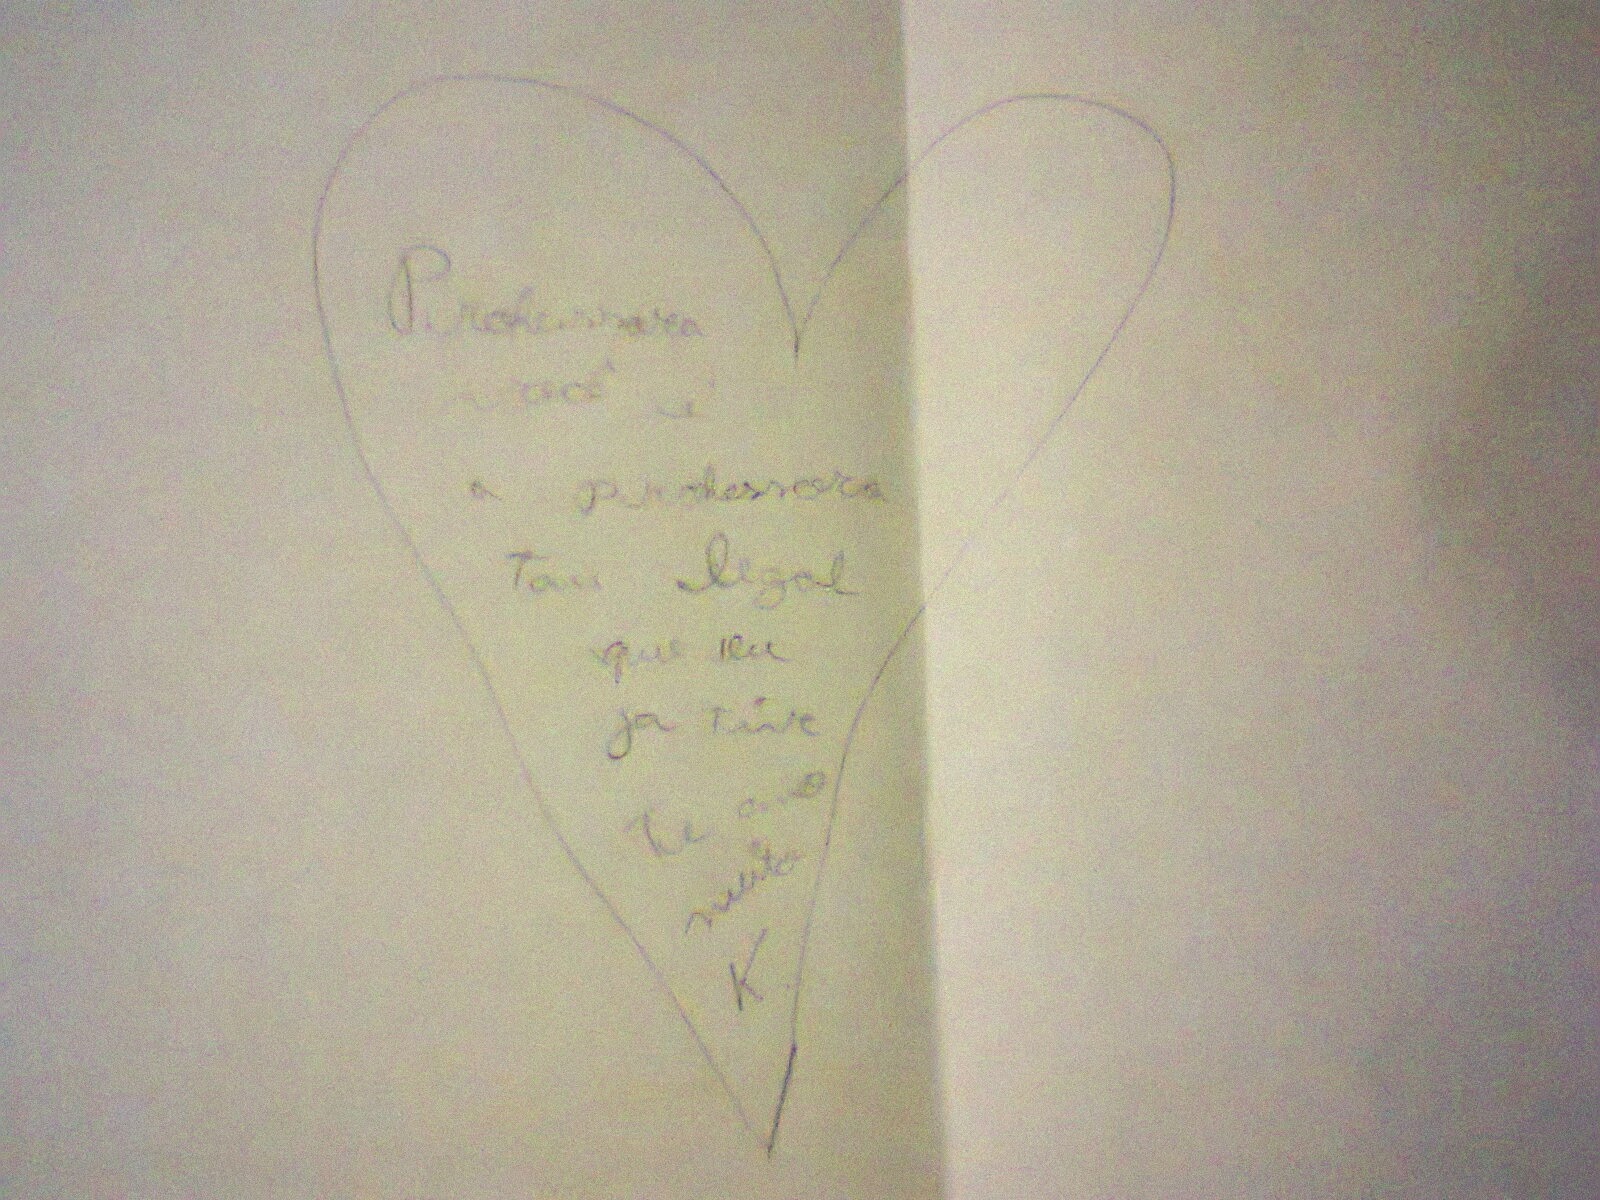 Professora
você é
a professora
Tau legal
que eu
ja tive
te amo
muito
K